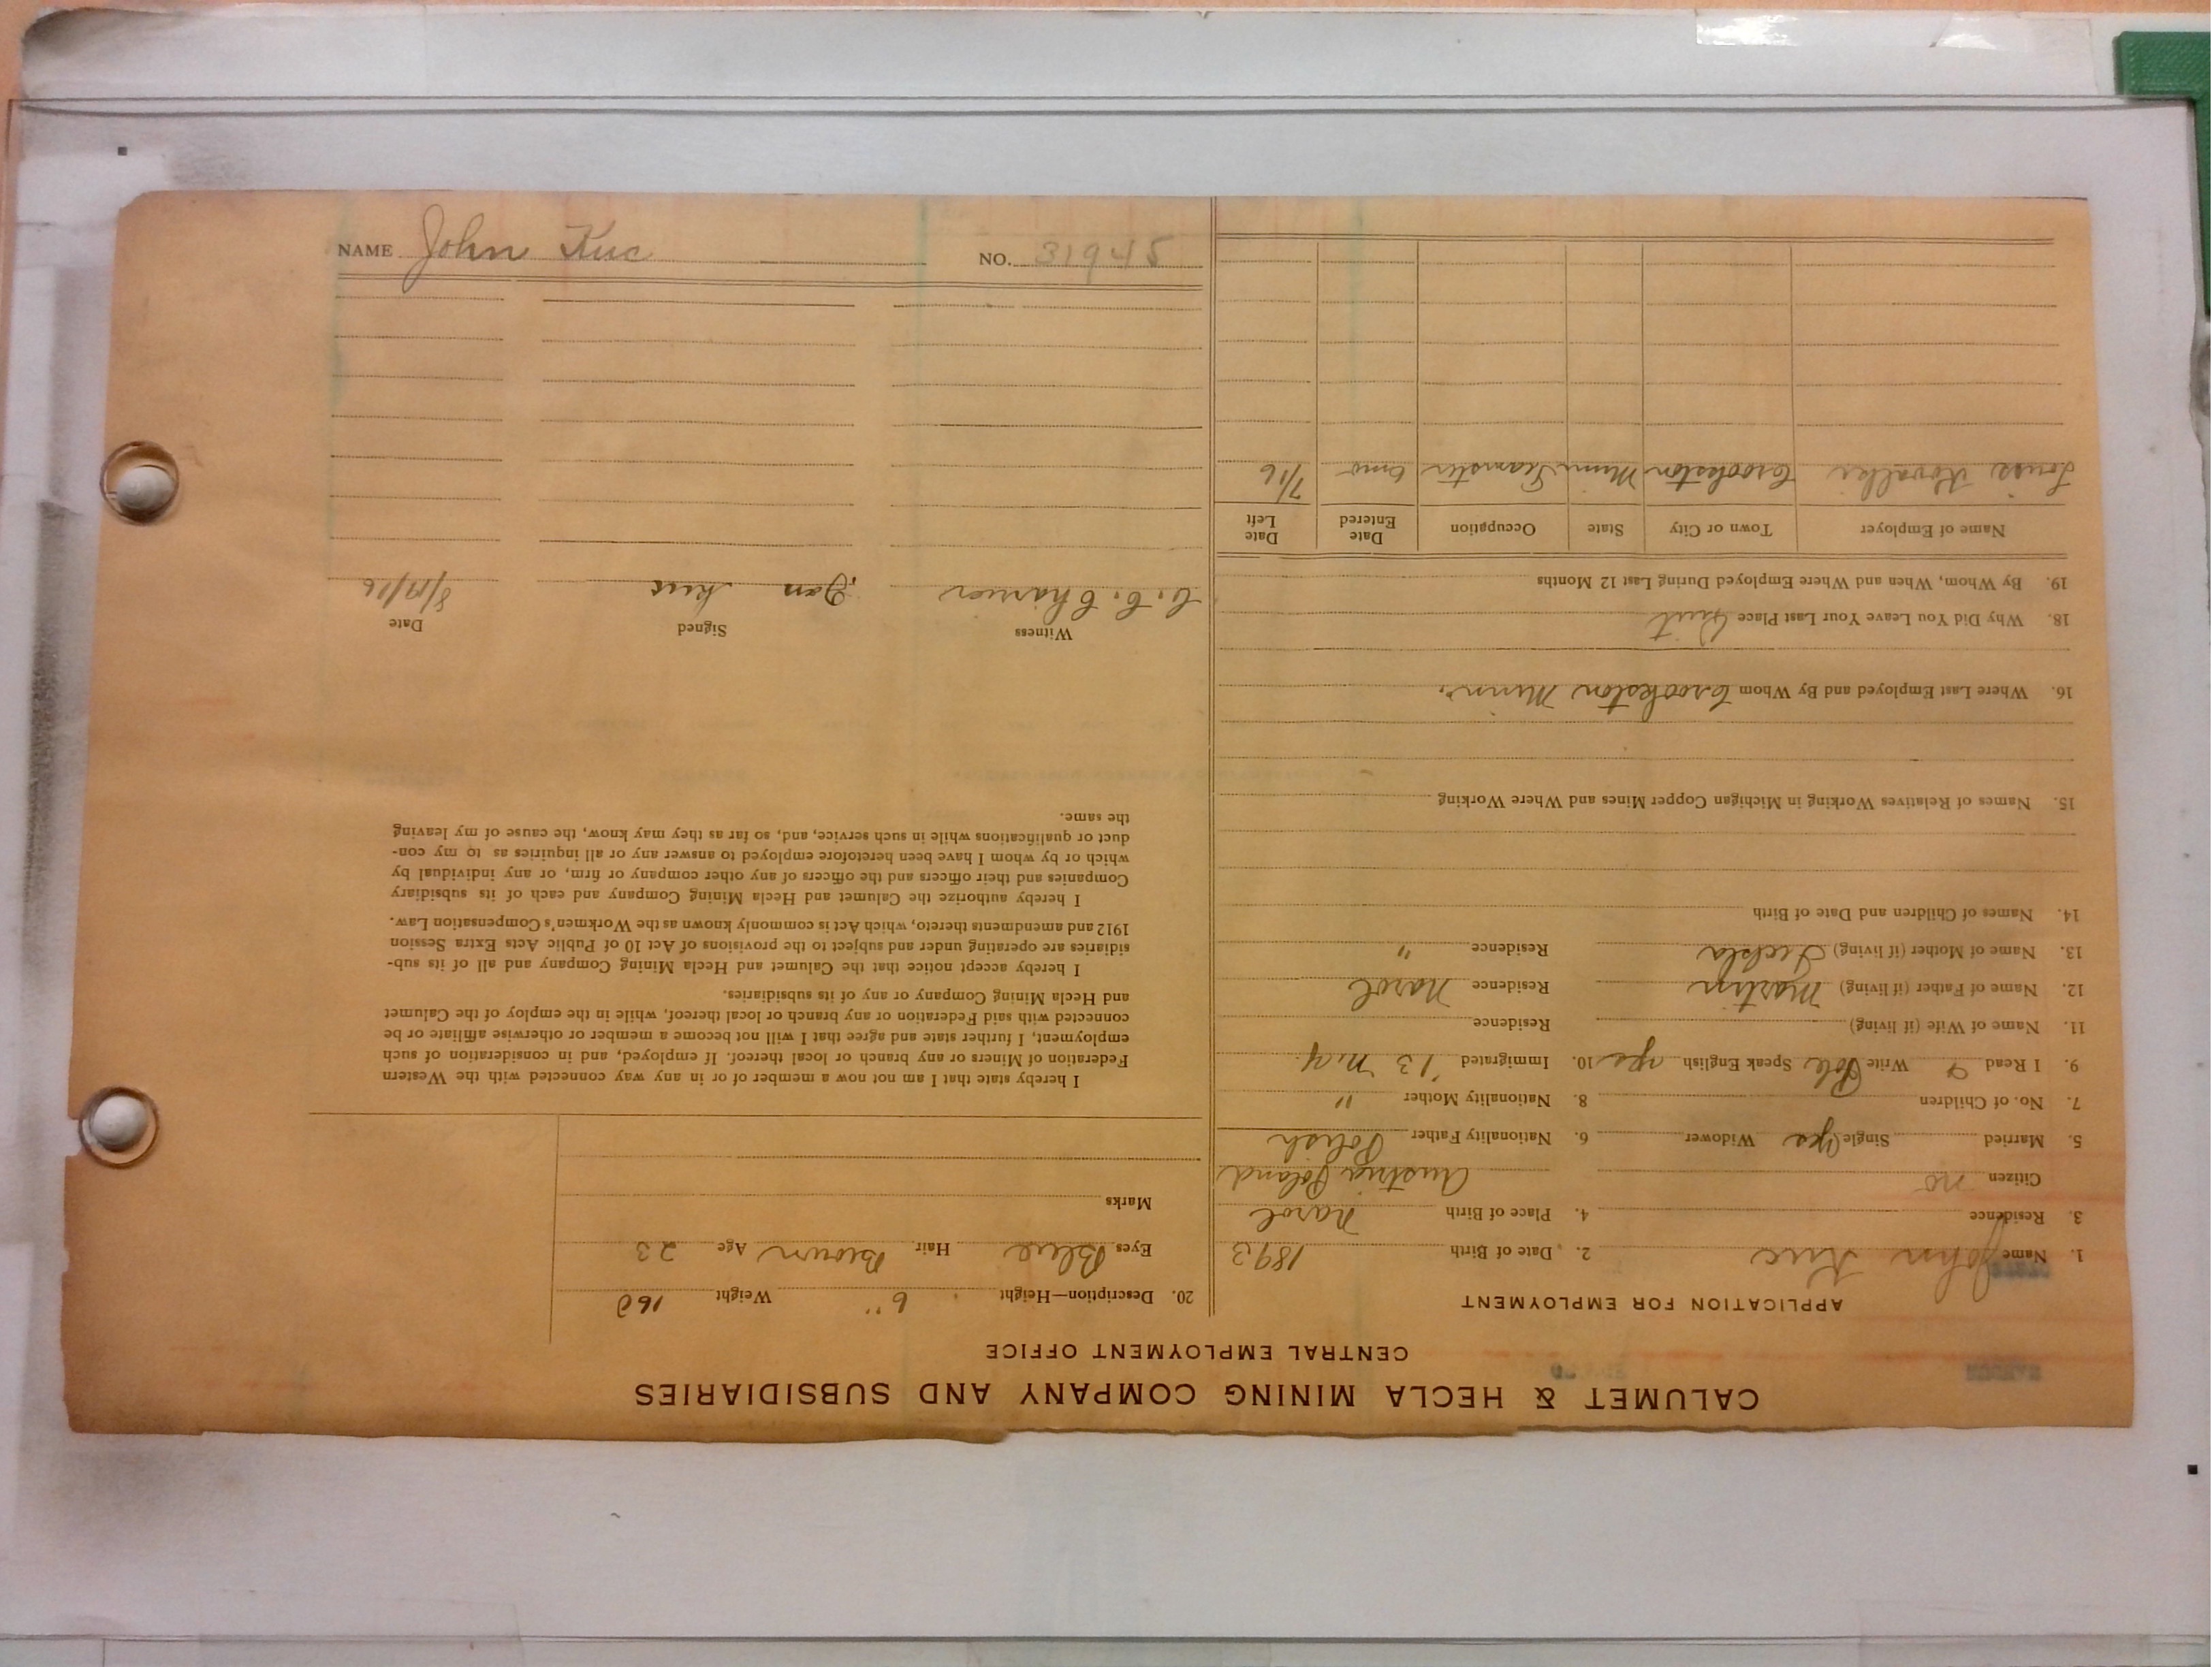 CALUMET & HECLA MINING COMPANY AND SUBSIDIARIES
CENTRAL EMPLOYMENT OFFICE
APPLICATION FOR EMPLOYMENT
1. Name John Kuc 2. Date of Birth 1893
3. Residence 4. Place of Birth Narol
Citizen no Austria Poland
5. Married Single yes Widower 6. Nationality Father Polish
7. No. of Children 8. Nationality Mother "
9. I Read & Write Pole Speak English yes 10. Immigrated '13 N.Y.
11. Name of Wife (if living) Residence
12. Name of Father (if living) Martin Residence Narol
13. Name of Mother (if living) Tekla Residence "
14. Names of Children and Date of Birth
15. Names of Relatives Working in Michigan Copper Mines and Where Working
16. Where Last Employed and By Whom Crookston Minn.
18. Why Did You Leave Your Last Place Quit
19. By Whom, When and Where Employed During Last 12 Months
Name of Employer Town or City State Occupation Date Entered Date Left
Louis Kovalki Crookston Minn Teamster 6mo 7/16
20. Description—Height 6" Weight 160
Eyes Blue Hair Brown Age 23
Marks
I hereby state that I am not now a member of or in any way connected with the Western
Federation of Miners or any branch or local thereof. If employed, and in consideration of such
employment, I further state and agree that I will not become a member or otherwise affiliate or be
connected with said Federation or any branch or local thereof, while in the employ of the Calumet
and Hecla Mining Company or any of its subsidiaries.
I hereby accept notice that the Calumet and Hecla Mining Company and all of its sub-
sidiaries are operating under and subject to the provisions of Act 10 of Public Acts Extra Session
1912 and amendments thereto, which Act is commonly known as the Workmen's Compensation Law.
I hereby authorize the Calumet and Hecla Mining Company and each of its subsidiary
Companies and their officers and the officers of any other company or firm, or any individual by
which or by whom I have been heretofore employed to answer any or all inquiries as to my con-
duct or qualifications while in such service, and, so far as they may know, the cause of my leaving
the same.
Witness Signed Date
Jan Kuc 8/19/16
NAME John Kuc NO. 31945